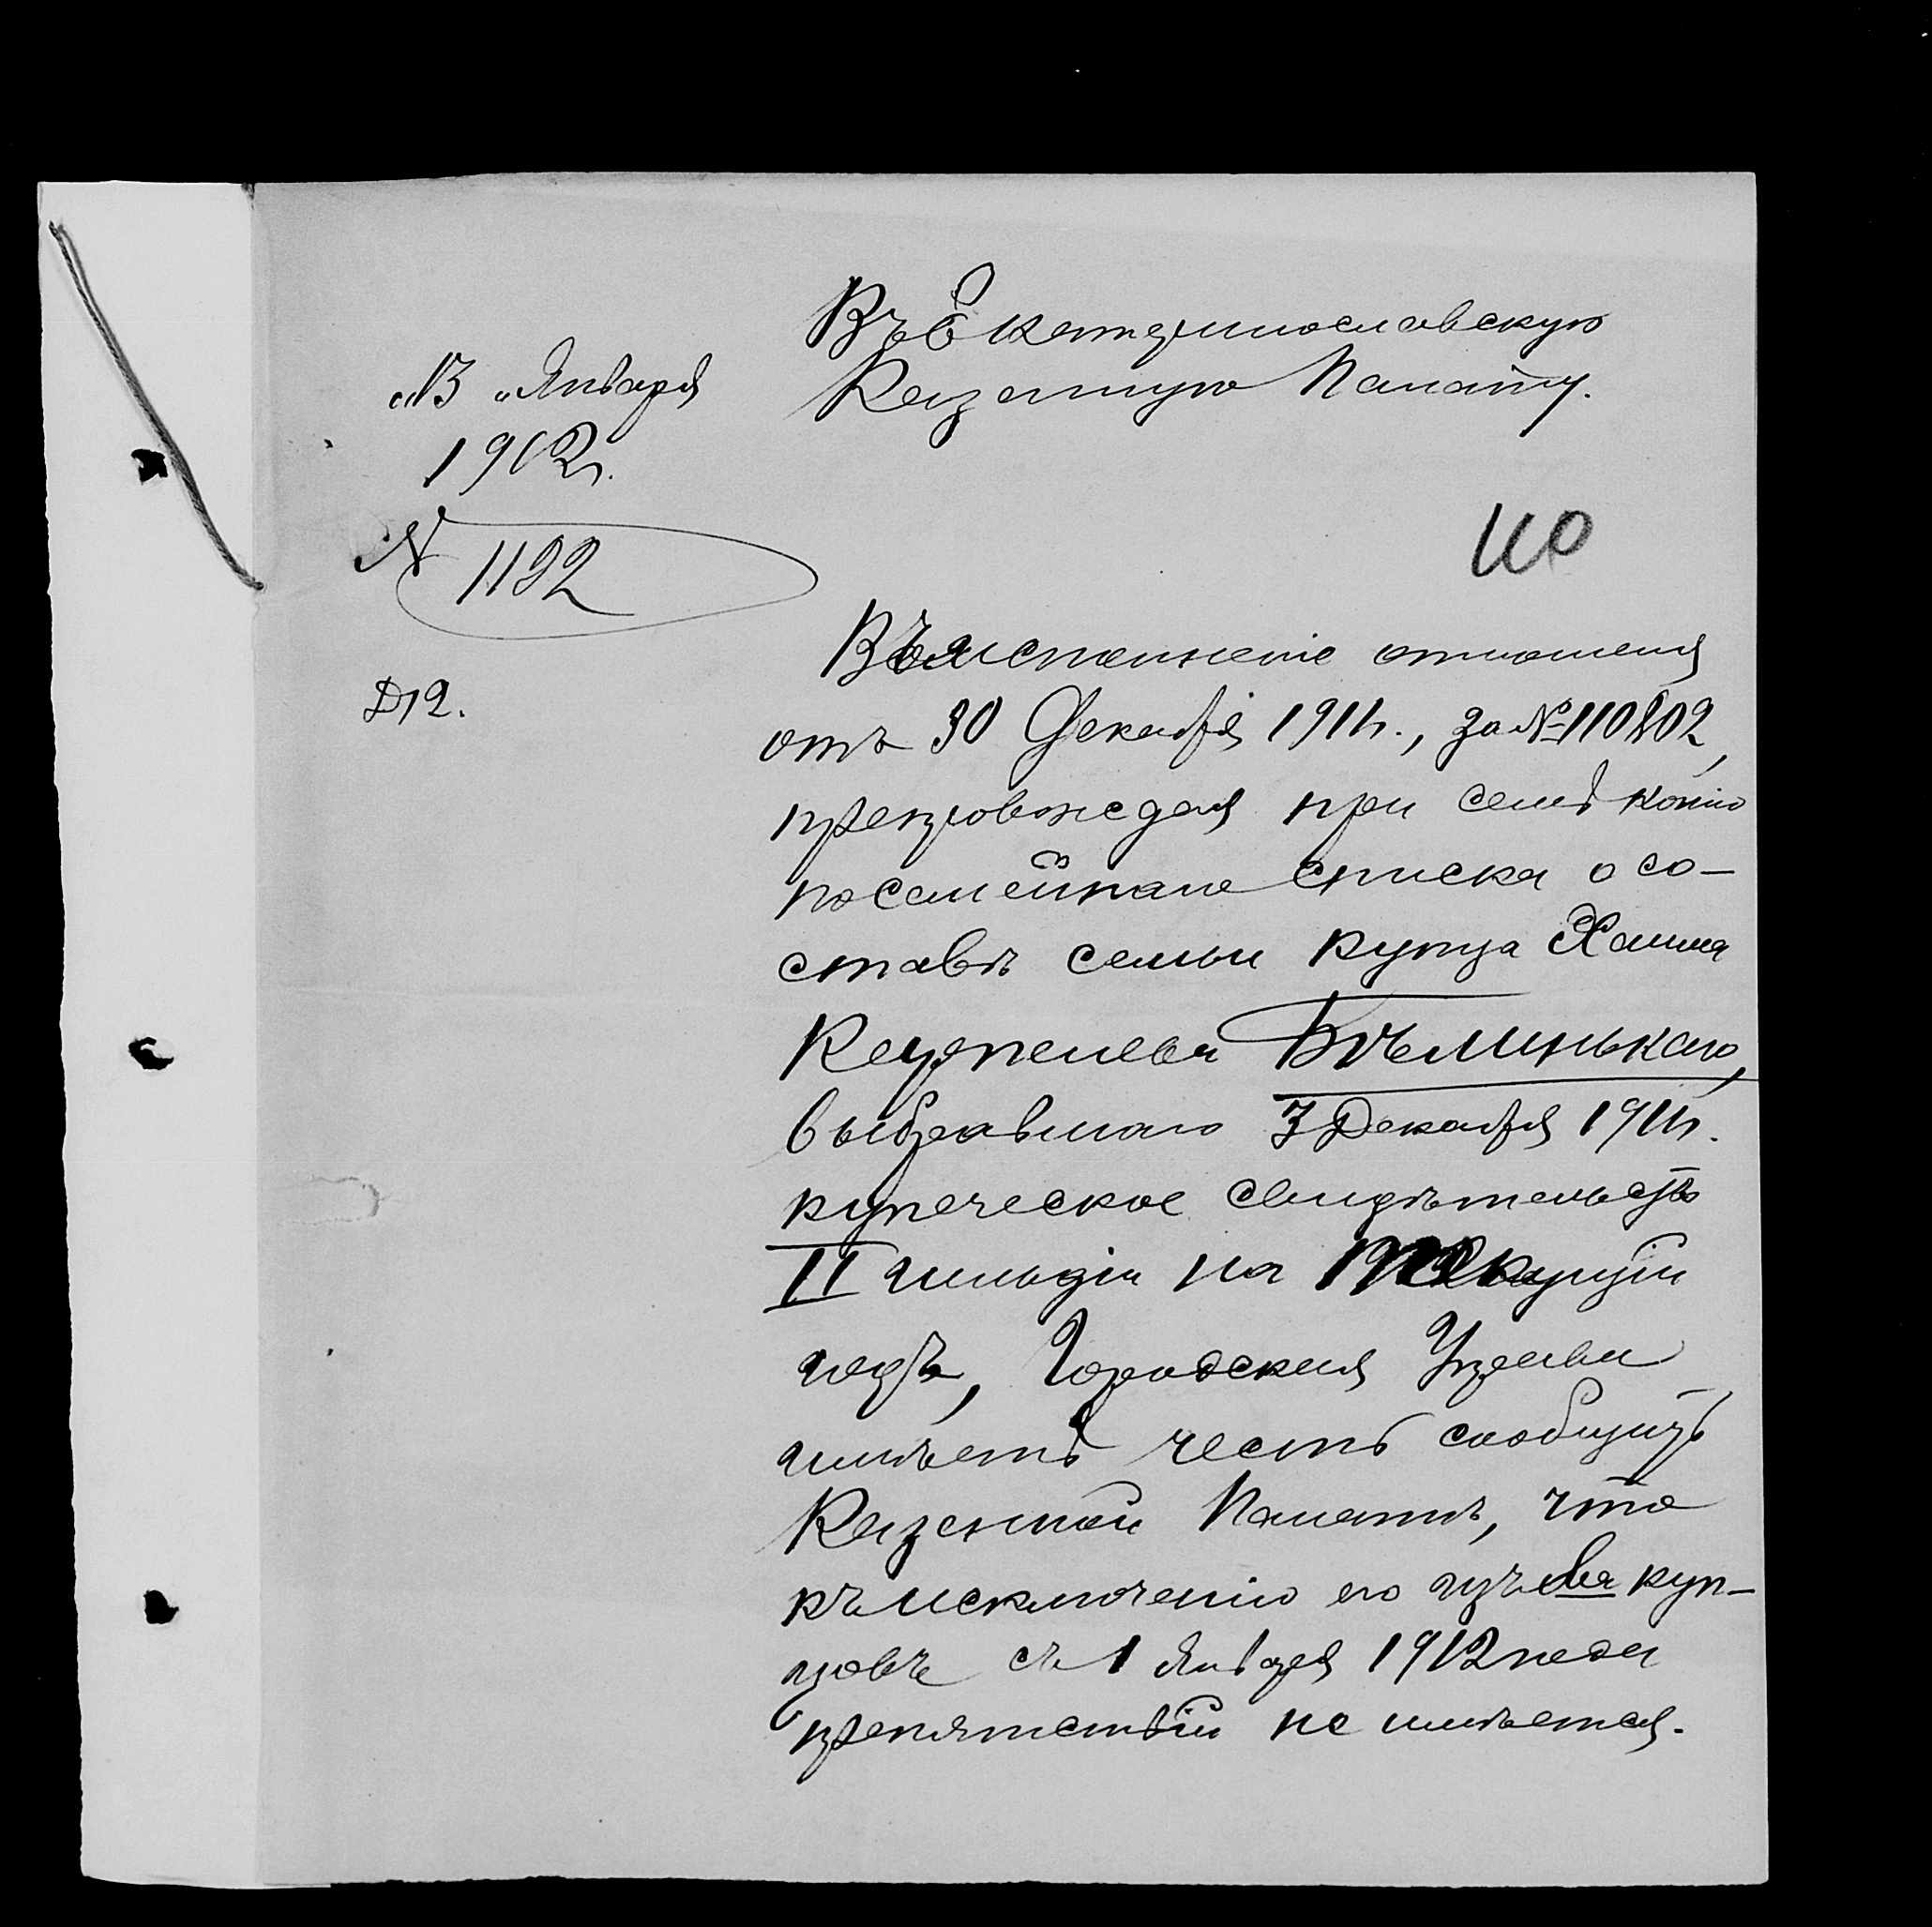 Въ Екатеринославскую
Казенную Палату.
„13 „ Января
1912 г.
№ 1192
110
Д 12.
Въ исполненіе отношенія
отъ 30 Декабря 1911 г., за № 110802,
препровождая при семъ копію
посемейнаго списка о со-
ставѣ семьи купца Хаима
Карпелева Бѣлинькаго,
выбравшаго 3 Декабря 1911 г.
купеческое свидѣтельство
II гильдіи на текущій
годъ, Городская Управа
имѣетъ честь сообщить
Казенной Палатѣ, что
къ исключенію его изъ куп-
цовъ съ 1 Января 1912 года
препятствій не имѣется.